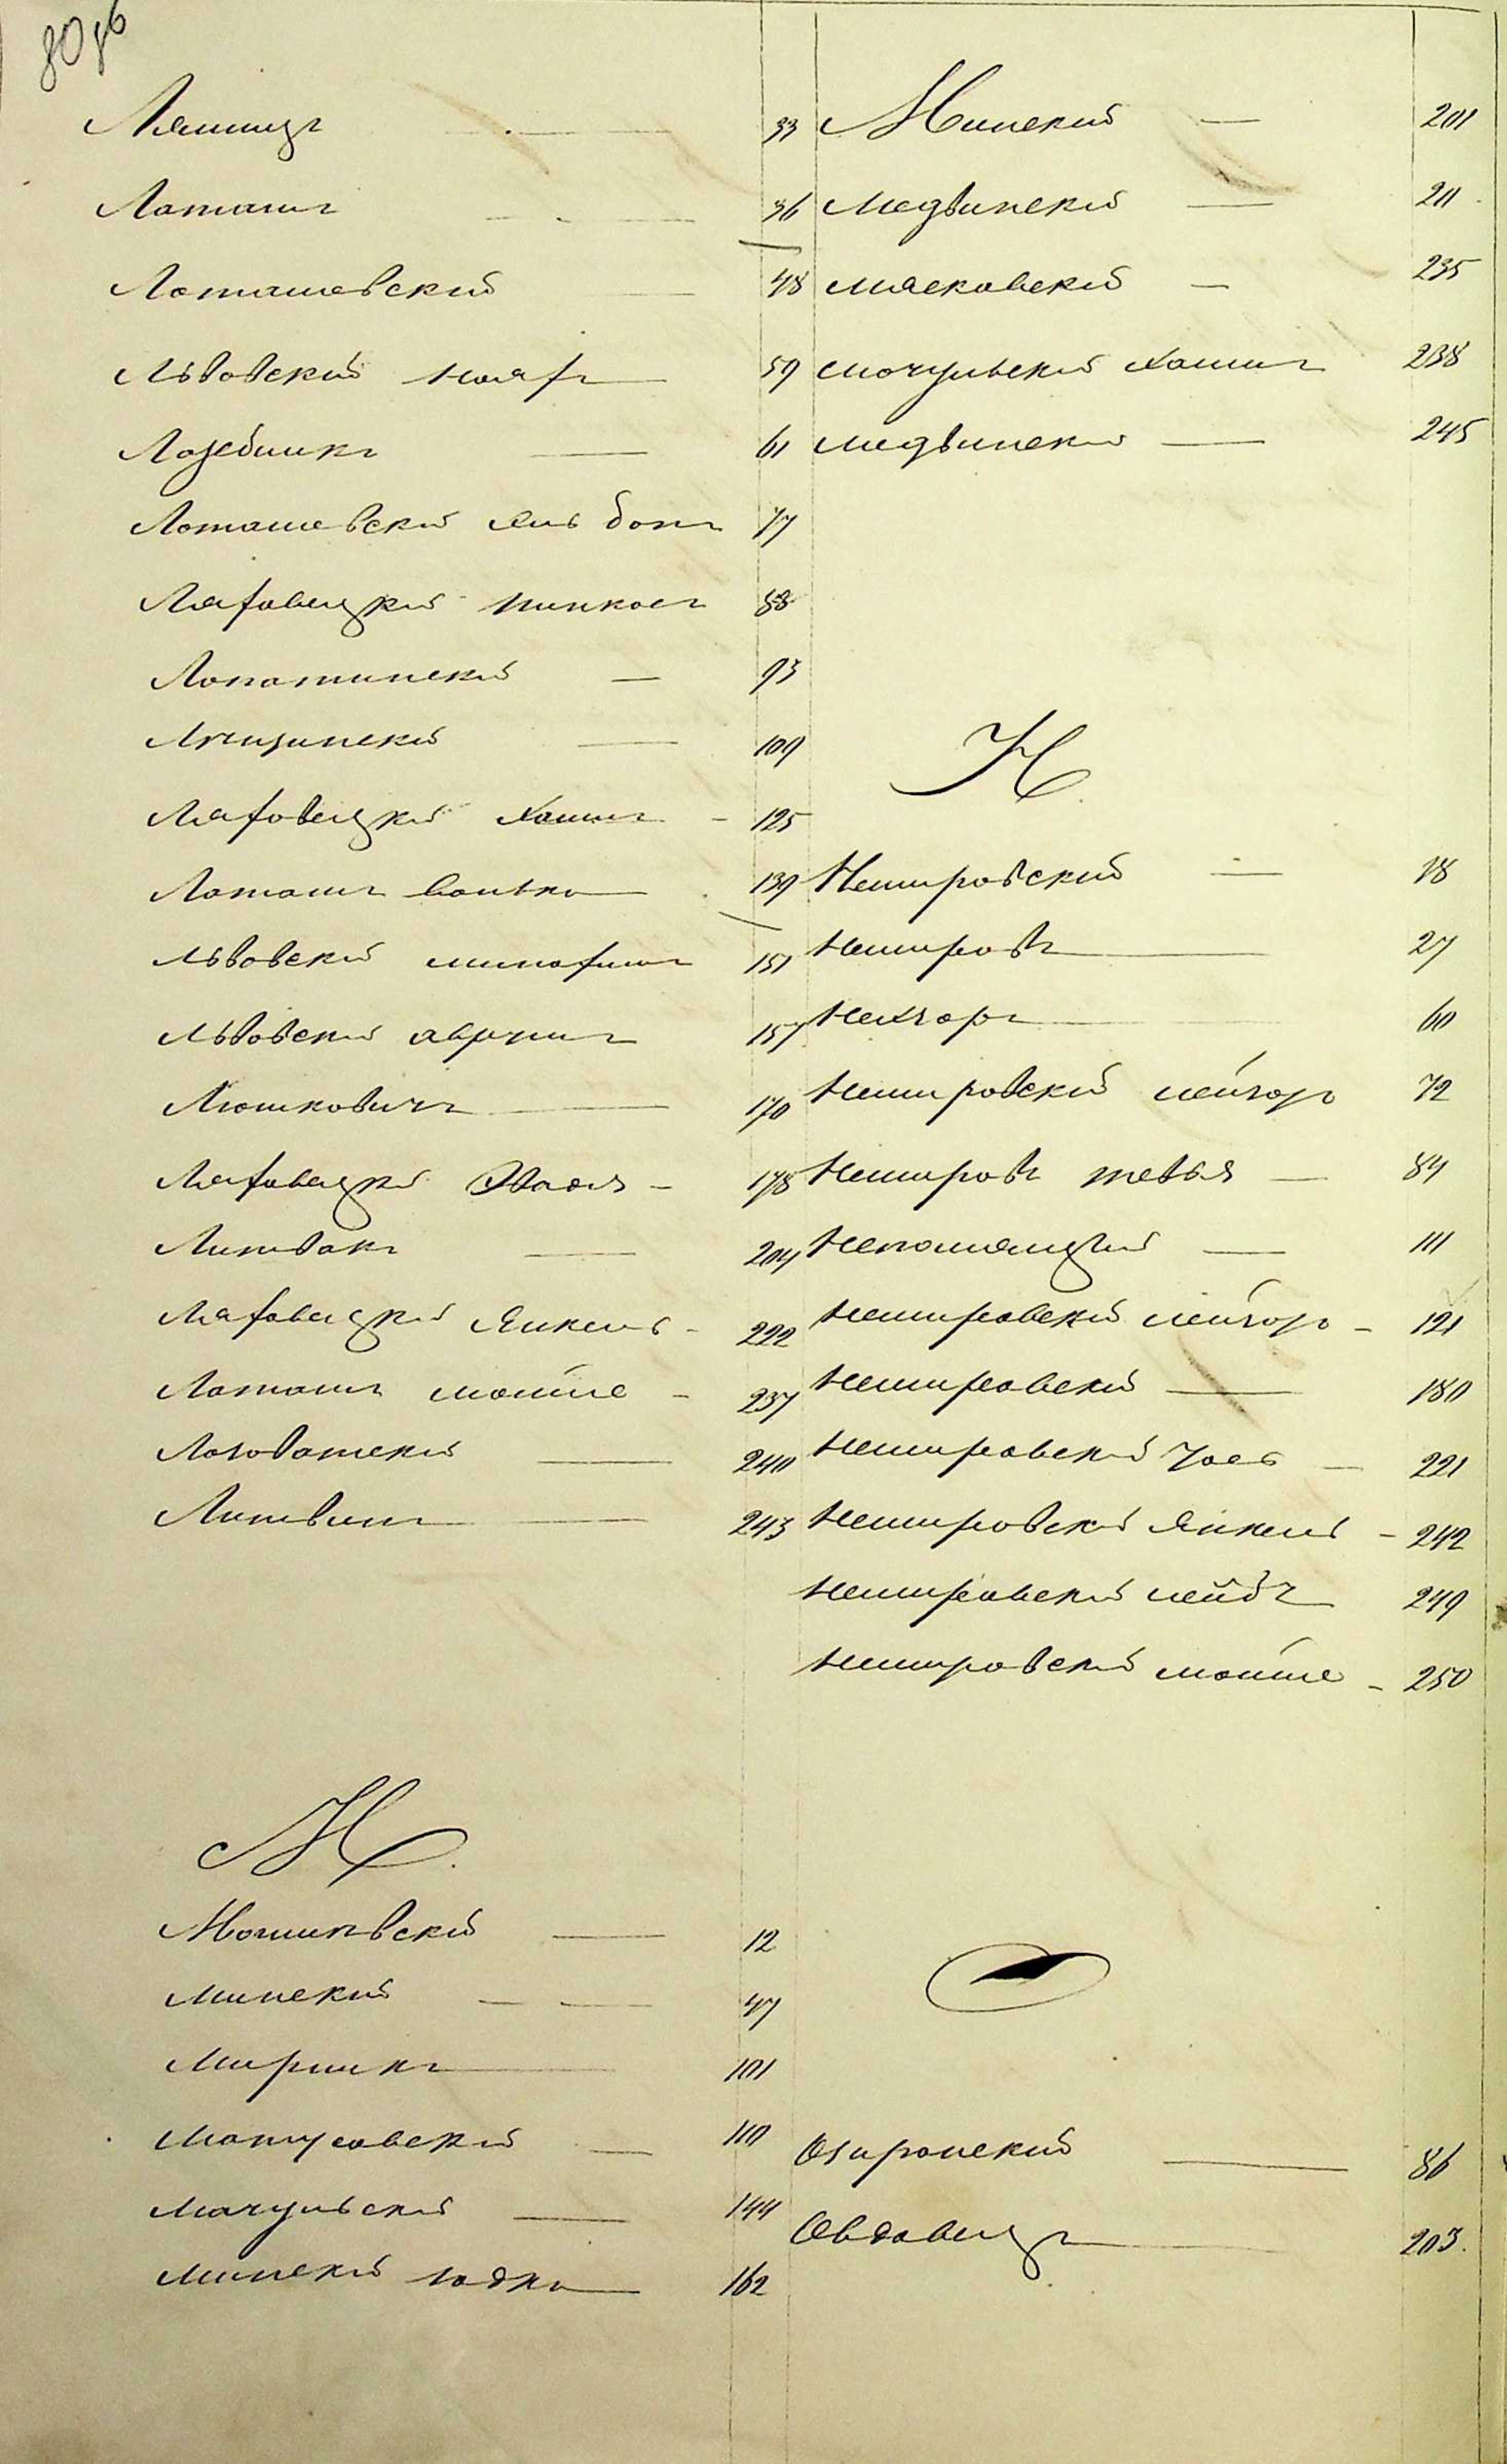 80 об
Лящицъ 33
Латашъ 36
Латашевскій 48
Львовскій 59
Лазебникъ 61
Латашевскій Янь 77
Ляховецкій Пинкасъ 88
Лопатинскій 93
Лучинскій 109
Ляховецкій Хаимъ - 125
Латашъ Волько 139
Львовскій 151
Львовскій Аврумъ 157
Люшковичъ 170
Ляховецкій - 178
Литвакъ 204
Ляховецкій Янкель - 222
Латашъ Мойше - 237
Лозоватскій 240
Литвинъ 243
М.
Могилевскій 12
Минскій 47
Мирникъ 101
Матусовскій 110
Мачульскій 144
Минскій 162
Минскій 201
Медвинскій 211
Мясковскій 235
Мочульскій Хаимъ 238
Медвинскій 245
Н.
Немировскій 18
Немировъ 27
Нехторъ 60
Немировскій Лейзоръ 72
Немировъ Тевья 84
Непомнящій 111
Немировскій Лейзоръ - 121
Немировскій 180
Немировскій 221
Немировскій Янкель - 242
Немировскій Лейбъ 249
Немировскій Мойше - 250
О
86
Овдовецъ 203.